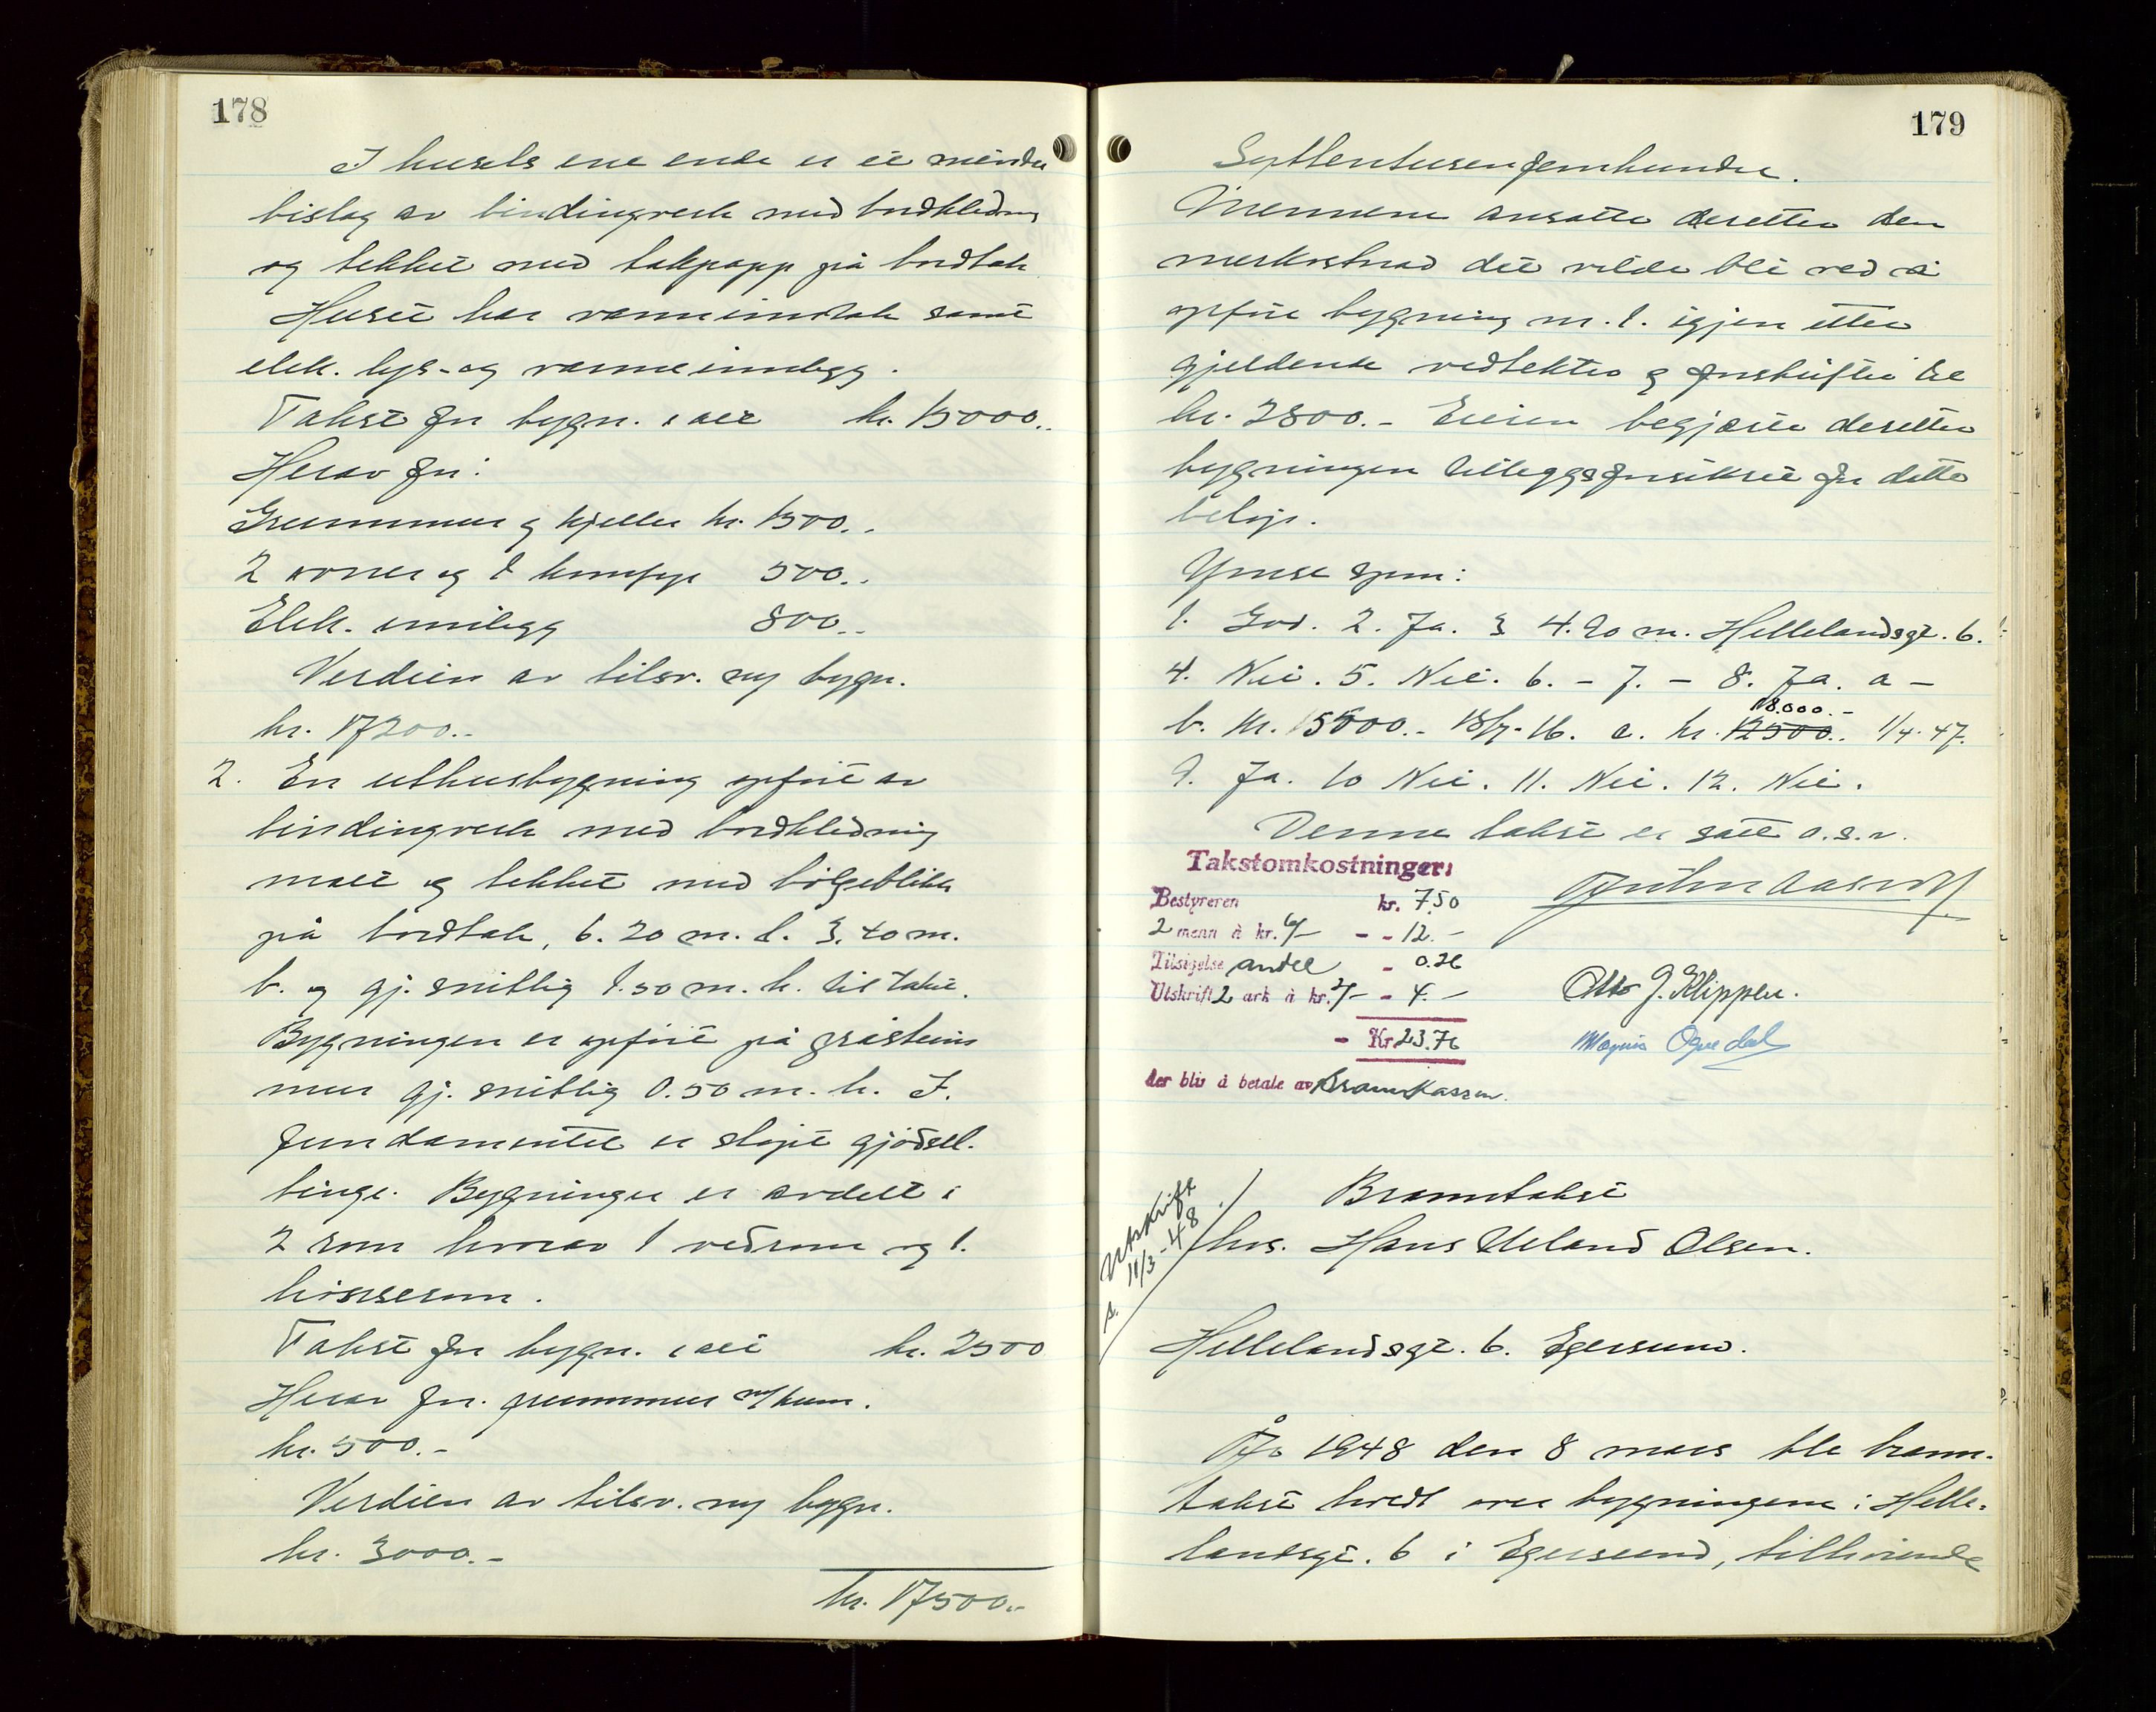 178
I husets ene ende er et mindre
bislag av bindingverk med bordkledning
og tekket med takpapp på bordtak
Huset har vanninntak samt
elek. lys- og varmeinnlegg.
Takst for bygn. i alt kr. 15000.-
Herav for:
Grunnmur og kjeller kr. 1500.-
2 ovner og 1 komfyr 500.-
Elek. innlegg 800.-
Verdien av tilsv. ny bygn.
kr. 17200.-
2. En uthusbygning opført av
bindingverk med bordkledning
malt og tekket med bølgeblikk
på bordtak, 6.20 m. l. 3.40 m.
b. og gj. snittlig 1.50 m. h. til taket.
Bygningen er opført på gråsteins
mur gj. snittlig 0.50 m. h. I
fundamentet er støpt gjødsel-
binge. Bygningen er avdelt i
2 rom hvorav 1 vedrom og 1
hønserom.
Takst for bygn. i alt kr. 2500
Herav for grunnmur m/kum.
kr. 500.-
Verdien av tilsv. ny bygn.
kr. 3000.-
kr. 17500.-
179
Syttentusenfemhundre.
Mennene ansatte deretter den
merkostnad det vilde bli ved å
opføre bygning nr. 1. igjen etter
gjeldende vedtekter og forskrifter til
kr. 2800.- Eieren begjærte deretter
bygningen tilleggsforsikret for dette
beløp.
Ymse spm:
1. God. 2. Ja. 3 4.20 m. Hellelandsgt. 6.
4. Nei. 5. Nei. 6. - 7. - 8. Ja. a -
18.000.-
b. kr. 15500.- 18/7-16. c. kr. 12500.. 1/4. 47.
9. Ja. 10 Nei. 11. Nei. 12. Nei.
Denne takst er satt o.s.v.
Takstomkostninger:
Bestyreren kr. 7.50
2 menn à kr. 6/- - - 12.-
Tilsigelse andel - 0.26
Utskrift 2 ark à kr. 2/- - 4.-
- Kr 23.76
der blir å betale av Brannkassen.
Otto J. Klippen.
Magnus Opedal
Utskrift
s. 11/3-48
Branntakst
hos. Hans Ueland Olsen.
Hellelandsgt. 6. Egersund.
År 1948 den 8 mars ble brann-
takst holdt over bygningene i Helle-
landsgt. 6 i Egersund, tilhørende